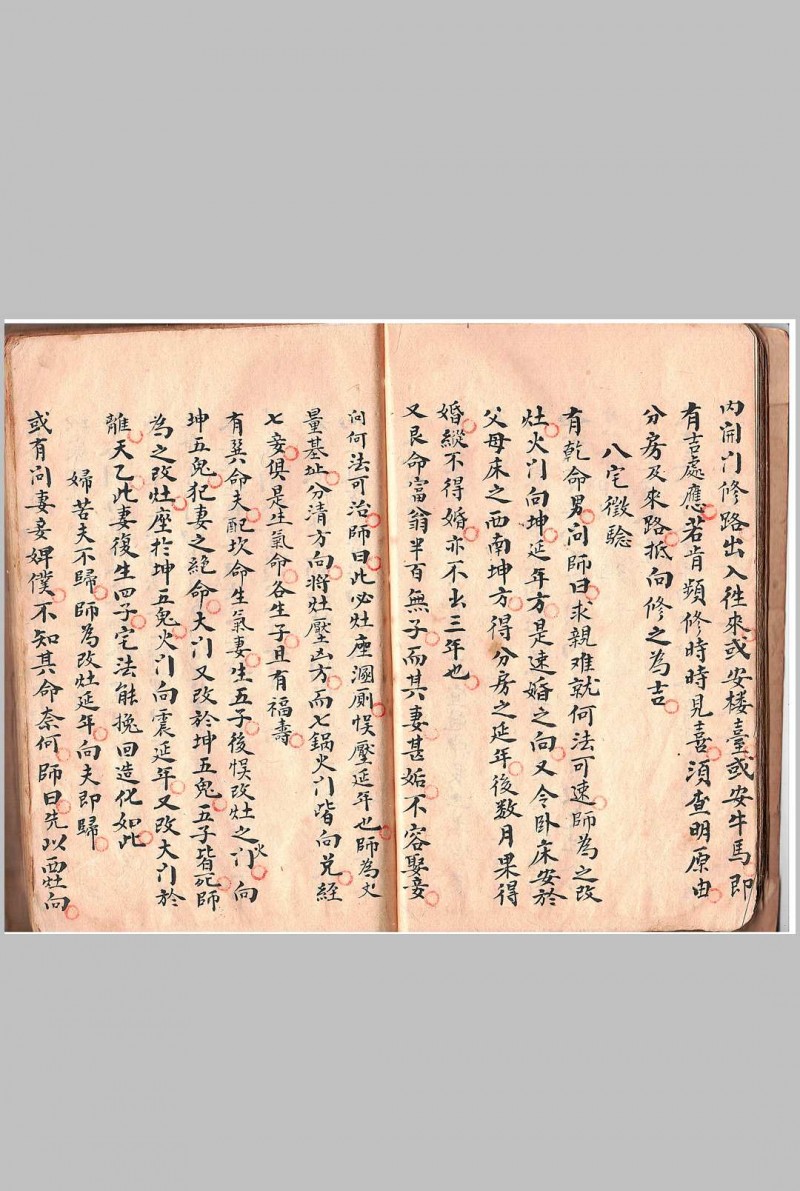 內開门修路出入徃來或安楼臺或安牛馬即
有吉處應若肯頻修時時見喜湏查明原由
分房及來路抵向修之為吉
八宅徵騐
有乾命男问師曰求親难就何法可速師為之改
灶火门向坤延年方是速婚之向又令卧床安於
父母床之西南坤方得分房之延年後数月果得
婚縱不得婚亦不出三年也
又艮命富翁半百無子而其妻甚妬不容娶妾
问何法可治師曰此必灶座溷厠悮壓延年也師為丈
量基址分清方向將灶壓凶方而七鍋火门皆向兌経
七妾俱是生氣命各生子且有福壽
有巽命夫配坎命生氣妻生五子後悮改灶之火门向
坤五鬼犯妻之絶命大门又改於坤五鬼五子皆死師
為之改灶座於坤五鬼火门向震延年又改大门於
離天乙此妻復生四子宅法能挽回造化如此
婦苦夫不歸師為改灶延年向夫即歸
或有问妻妾婢僕不知其命奈何師曰先以西灶向